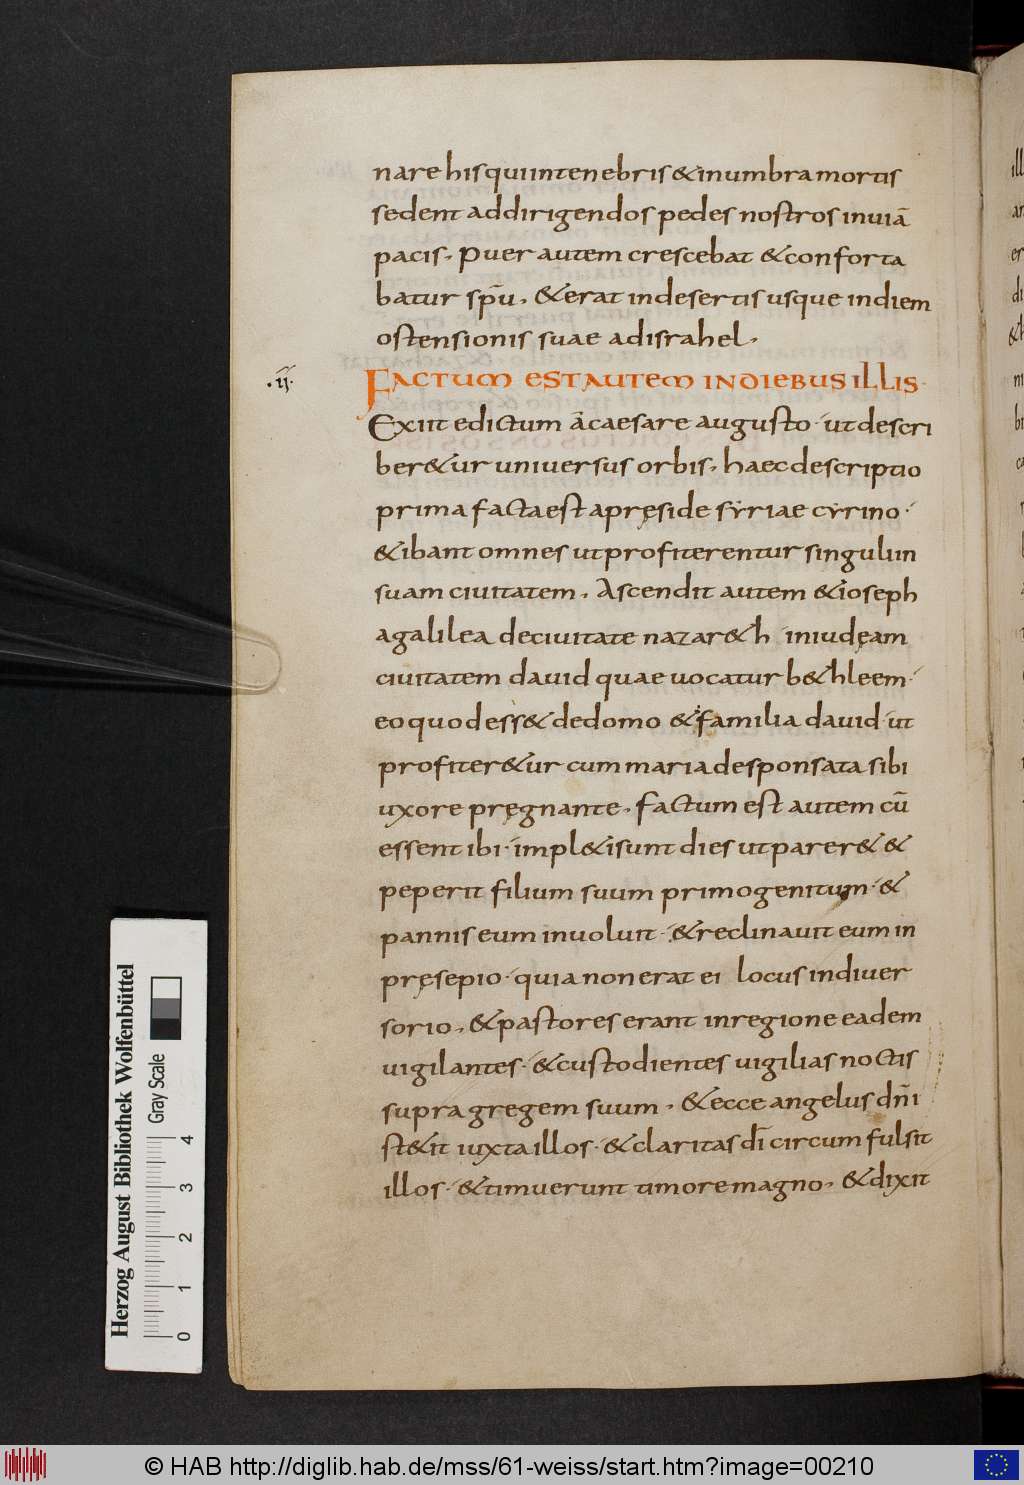 nare his qui intenebris & inumbra mortis
sedent addirigendos pedes nostros inuiā
pacis. Puer autem crescebat & conforta
batur sp̄u. & erat indesertis usque indiem
ostensionis suae adisrahel.
.ii. FACTUM EST AUTEM IN DIEBUS ILLIS.
Exiit edictum ācaesare augusto. ut descri
ber&ur uniuersus orbis. haec descriptio
prima facta est apręside syriae cyrino.
& ibant omnes ut profiterentur singuli in
suam ciuitatem. Ascendit autem & ioseph
agalilea deciuitate nazar&h iniudęam
ciuitatem dauid quae uocatur b&hleem.
eo quod ess& dedomo & familia dauid. ut
profiter&ur cum maria desponsata sibi
uxore pręgnante. factum est autem cū
essent ibi. impl&i sunt dies ut parer& &
peperit filium suum primogenitum. &
pannis eum inuoluit. & reclinauit eum in
pręsepio. quia non erat ei locus indiuer
sorio. & pastores erant inregione eadem
uigilantes. & custodientes uigilias noctis
supra gregem suum. & ecce angelus dn̄i
st&it iuxta illos. & claritas dī circumfulsit
illos. & timuerunt timore magno. & dixit
Herzog August Bibliothek Wolfenbüttel
Gray Scale
0 1 2 3 4
© HAB http://diglib.hab.de/mss/61-weiss/start.htm?image=00210